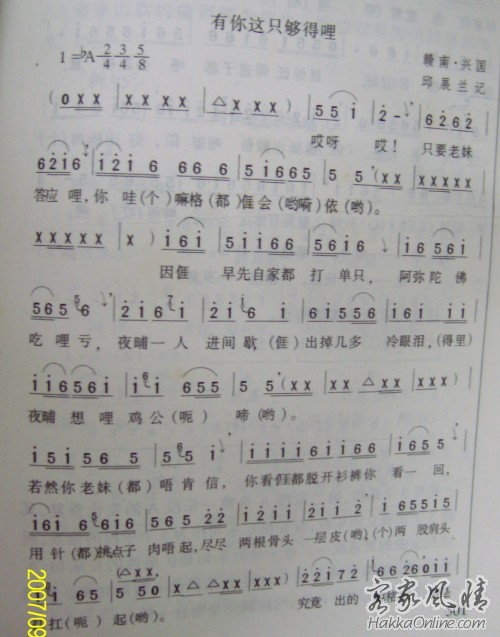 有你这只够得哩
1=♭A 2/4 3/4 5/8
赣南·兴国
邱展兰记
(0 x x | x x x x | △ x x x x) | 5 5 i | 2 - | 6 2 6 2
哎呀 哎！ 只要老妹
6 2 i 6 | i 2 i 6 6 6 6 | 5 i 6 6 5 5 5 (x x | x x x x x
答应哩,你 哇(个)嘛格(都)𠊎会(哟嗬)依(哟)。
x x x x x | x) | i 6 i | 5 i i 6 6 | 5 6 i 6 | i 6 5 6 i
因𠊎 早先自家都 打单只, 阿弥陀佛
5 6 5 6 | 2 i 6 i | 2 i 2 6 i | 6 i 5 5 6 | i 6 i i i
吃哩亏, 夜晡一人 进间歇(𠊎)出掉几多 冷眼泪,(得里)
i i 6 5 6 i | i i 6 5 5 | 5 5 (x x | x x △ x x | x x x)
夜晡想哩鸡公(呃) 啼(哟)。
i 5 i 5 i | 5 5 i | i i i i 6 i i 6 6 | i 6 5 5
若然你老妹(都)唔肯信, 你看𠊎都脱开衫裤你看一回,
i 6 i 6 6 i 6 | 5 6 5 2 2 | i 2 i i | 2 i i 2 | i 6 5 5 i 5
用针(都)挑点子肉唔起,尽尽 两根骨头 一层皮(哟),(个)两股肩头
i 6 5 5 | 5 5 0 | x x △ x x | x x x) | 2 2 i 7 2
(△ x x
扛(呃)起(哟)。 究竟出的
501
客家风情
HakkaOnline.com
2007/09